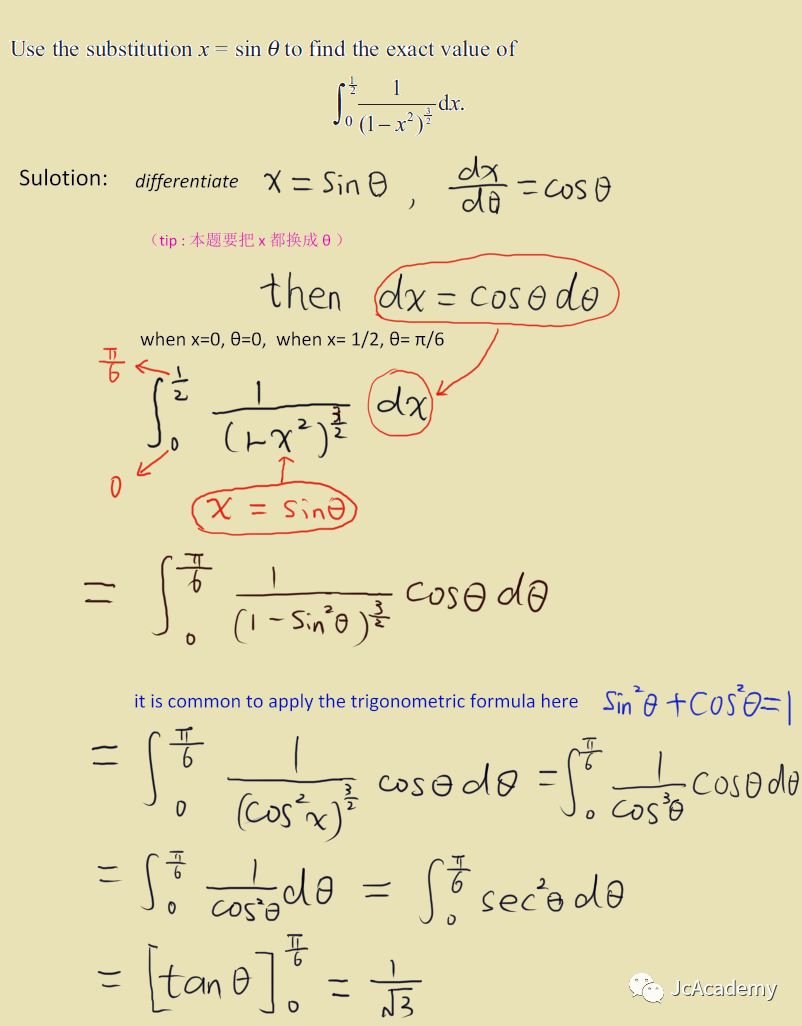 Use the substitution x = sin θ to find the exact value of
∫₀^(1/2) 1/(1−x²)^(3/2) dx.
Sulotion: differentiate x = sin θ , dx/dθ = cos θ
（tip : 本题要把 x 都换成 θ ）
then dx = cosθ dθ
when x=0, θ=0, when x= 1/2, θ= π/6
π/6
∫₀^(1/2) 1/(1-x²)^(3/2) dx
0
x = sinθ
= ∫₀^(π/6) 1/(1 − sin²θ)^(3/2) cosθ dθ
it is common to apply the trigonometric formula here sin²θ + cos²θ = 1
= ∫₀^(π/6) 1/(cos²x)^(3/2) cosθ dθ = ∫₀^(π/6) 1/cos³θ cosθ dθ
= ∫₀^(π/6) 1/cos²θ dθ = ∫₀^(π/6) sec²θ dθ
= [tan θ]₀^(π/6) = 1/√3
JcAcademy